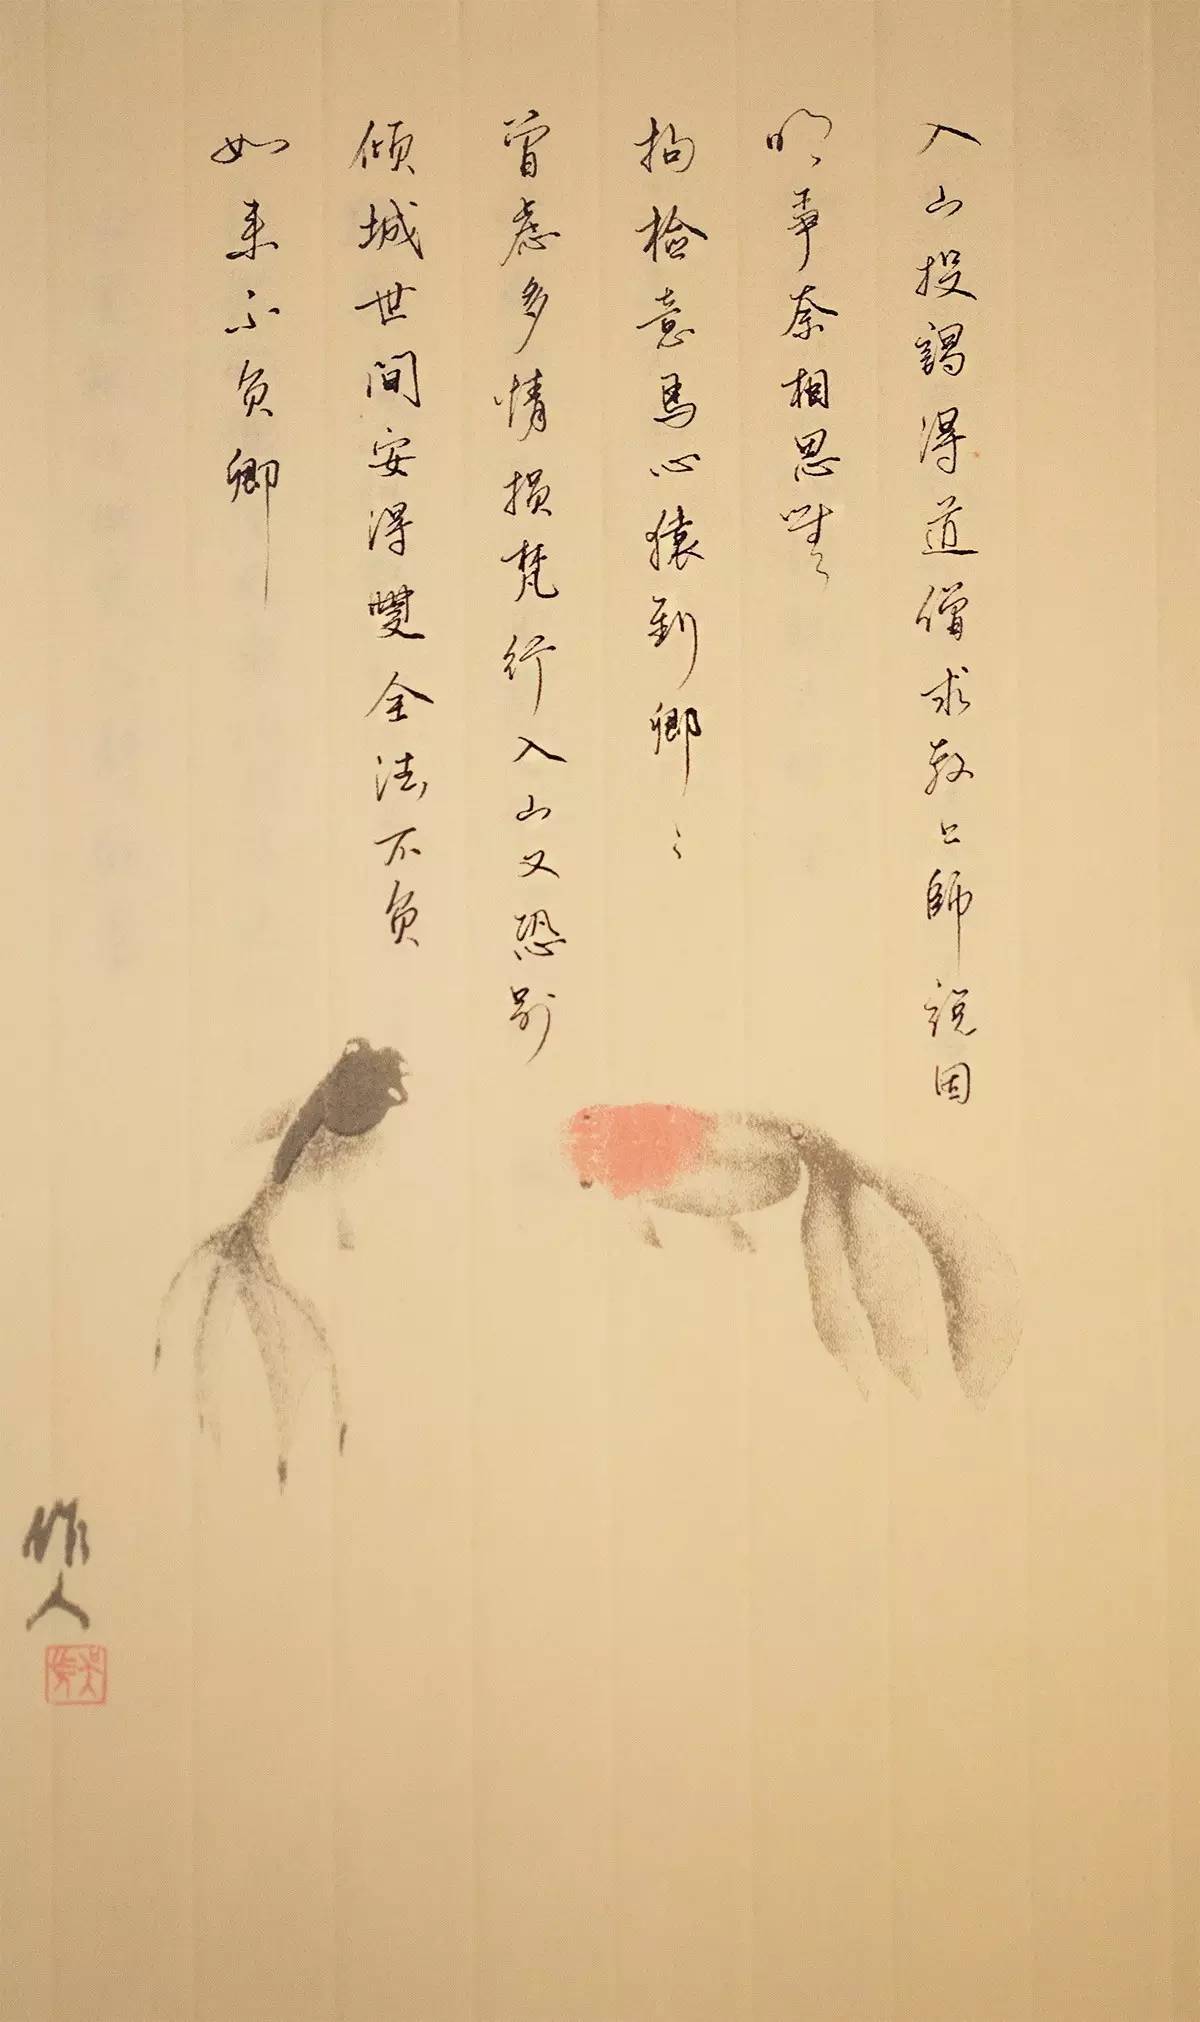 入山投謁得道僧求教上師說因
明爭奈相思無
拘检意馬心猿到卿〻
曾慮多情損梵行入山又恐別
倾城世間安得雙全法不負
如来不負卿
作人